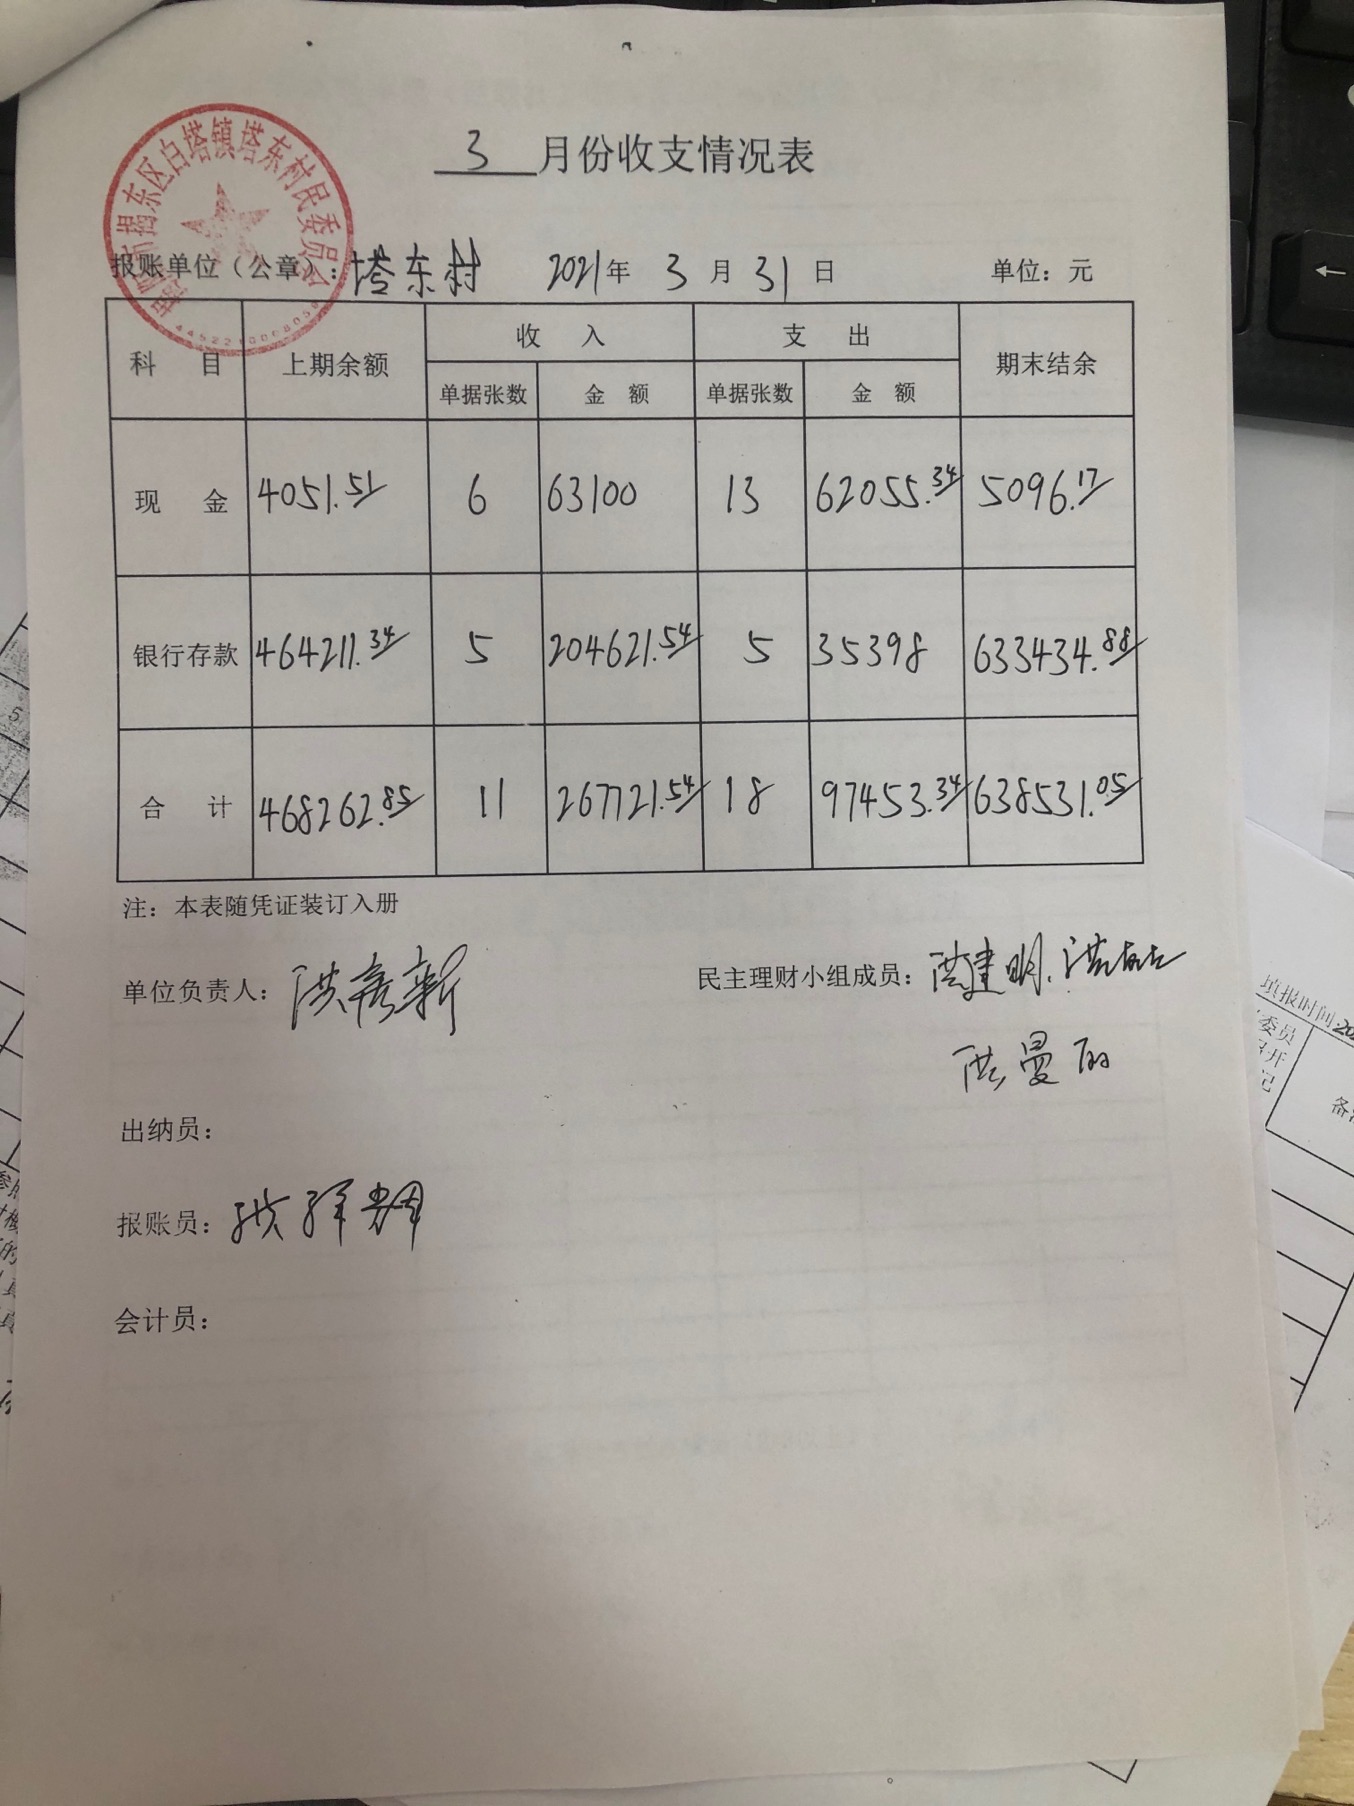 揭阳市揭东区白塔镇塔东村民委员会
3 月份收支情况表
报账单位（公章）：塔东村 2021年 3 月 31 日 单位：元
科 目 上期余额 收 入 支 出 期末结余
单据张数 金 额 单据张数 金 额
现 金 4051.51 6 63100 13 62055.34 5096.17
银行存款 464211.34 5 204621.54 5 35398 633434.88
合 计 468262.85 11 267721.54 18 97453.34 638531.05
注：本表随凭证装订入册
单位负责人：洪 新 民主理财小组成员：洪建明、洪
洪曼
出纳员：
报账员：
会计员：
填报时间：20
委员
召开
记
备